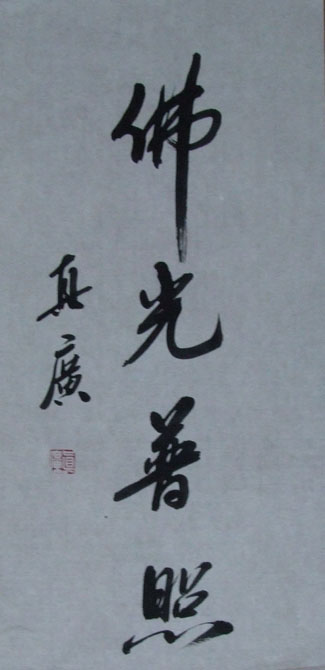 佛光普照
真廣